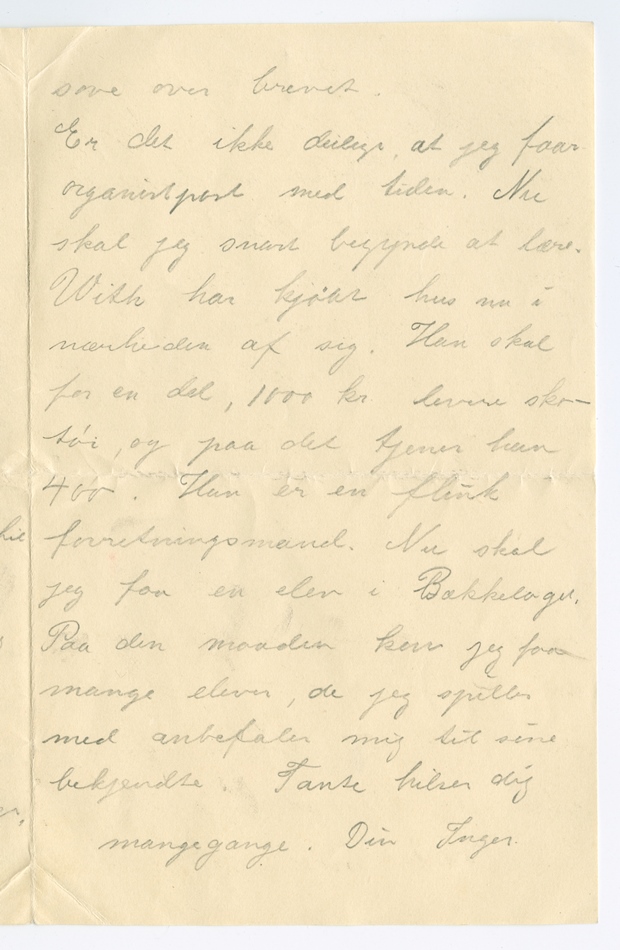 sove over brevet.
Er det ikke deiligt, at jeg faar
organistpost med tiden. Nu
skal jeg snart begynde at lære.
With har kjøbt hus nu i
nærheden af sig. Han skal
for en del, 1000 kr levere sko-
tøi, og paa det tjener han
400. Han er en flink
forretningsmand. Nu skal
jeg faa en elev i Bækkelaget.
Paa den maaden kan jeg faa
mange elever, de jeg spiller
med anbefaler mig til sine
bekjendte. Tante hilser dig
mangegange. Din Inger.